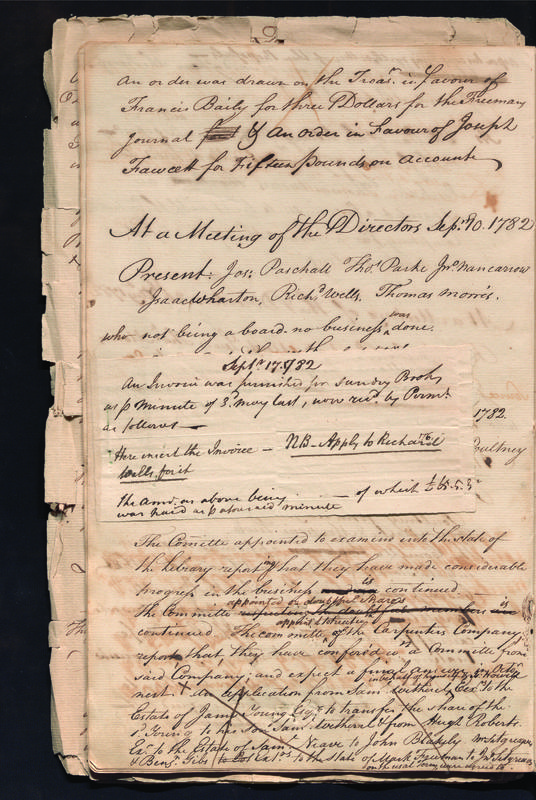 An order was drawn on the Treasr. in favour of
Francis Baily for three Dollars for the Freemans
Journal & An order in Favour of Joseph
Fawcett for Fifteen pounds on Account
At a Meeting of the Directors Sepr. 10. 1782
Present: Jos: Paschall Thos. Parke Jno. Nancarrow
Isaac Wharton, Richd. Wells. Thomas Morris.
who not being a board no business was done.
Septr. 17. 1782
An Invoice was furnished for Sundry Books
as p Minute of 3d. May last, now recd. by
as follows
Here insert the Invoice — NB - Apply to Richard
Wells for it
The Amt. as above being — of which
was paid as p aforesaid minute
1782.
Pultney
The Comittee appointed to examine into the state of
the Library report that they have made considerable
progress in the business is continued
the Committee appointed on
continued. The committee of the Carpenters Company
report that they have confer'd wh. a Committe from
said Company, and expect a final answer in Octr.
next. An Application from Saml. Wetherel Exr. to the
Estate of James Young Esqr. to transfer the share of the
sd. Young to his son Saml. Wetheral & from Hugh Roberts
Exr. to the Estate of Saml. Neave to John Blakely
& Benjn. Gibs to the Estate of Mark Freeman to
on the usual Terms were agreed to